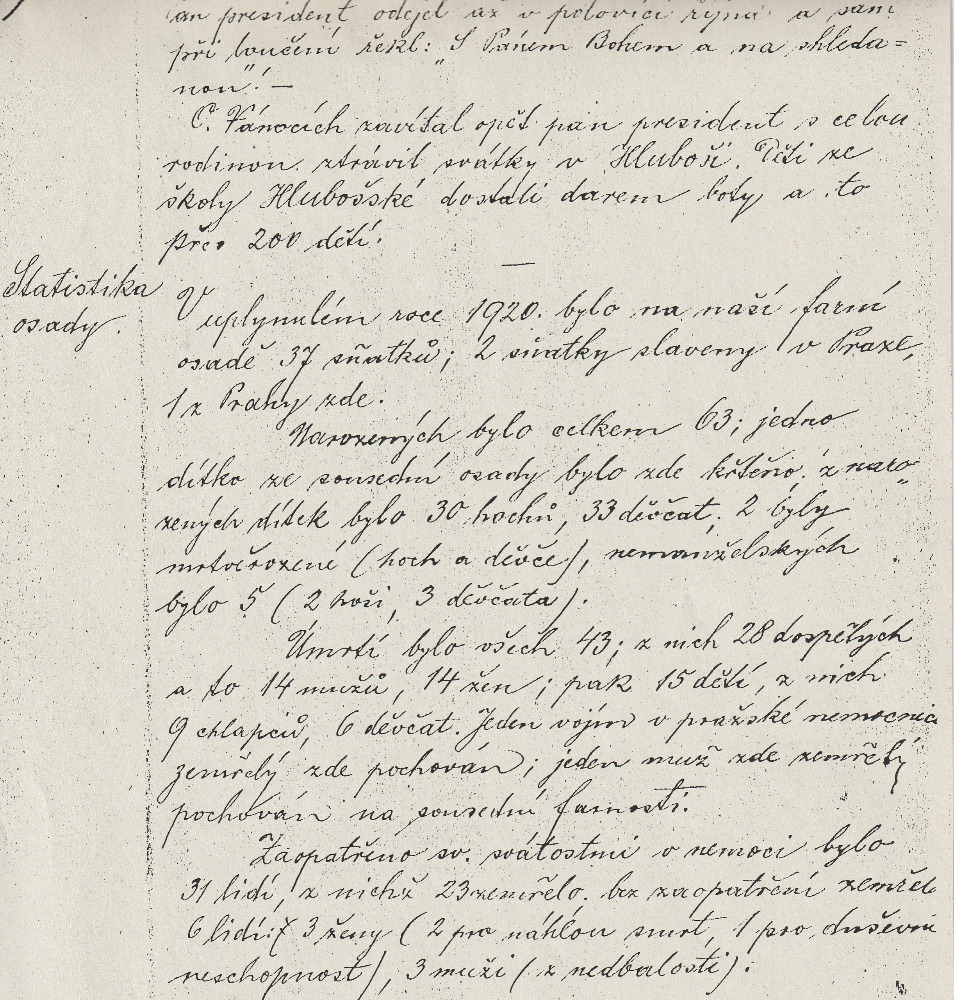 an president odejel až v polovici října a sám
při loučení řekl: „S Pánem Bohem a na shleda=
nou“! —
O. Vánocích zavítal opět pan president s celou
rodinou ztrávil svátky v Hluboši. Děti ze
školy Hlubošské dostali darem boty a to
přes 200 dětí.
—
Statistika
osady.
V uplynulém roce 1920. bylo na naší farní
osadě 37 sňatků; 2 sňatky slaveny v Praze,
1 z Prahy zde.
Narozených bylo celkem 63; jedno
dítko ze sousední osady bylo zde křtěno; z naro„
zených dítek bylo 30 hochů, 33 děvčat; 2 byly
mrtvěrozené (hoch a děvče), nemanželských
bylo 5 (2 hoši, 3 děvčata).
Úmrtí bylo všech 43; z nich 28 dospělých
a to 14 mužů, 14 žen; pak 15 dětí, z nich
9 chlapců, 6 děvčat. Jeden vojín v pražské nemocnici
zemřelý zde pochován; jeden muž zde zemřelý
pochován na sousední farnosti.
Zaopatřeno sv. svátostmi v nemoci bylo
31 lidí, z nichž 23 zemřelo. bez zaopatření zemřelo
6 lidí: 3 ženy (2 pro náhlou smrt, 1 pro duševní
neschopnost), 3 muži (z nedbalosti).